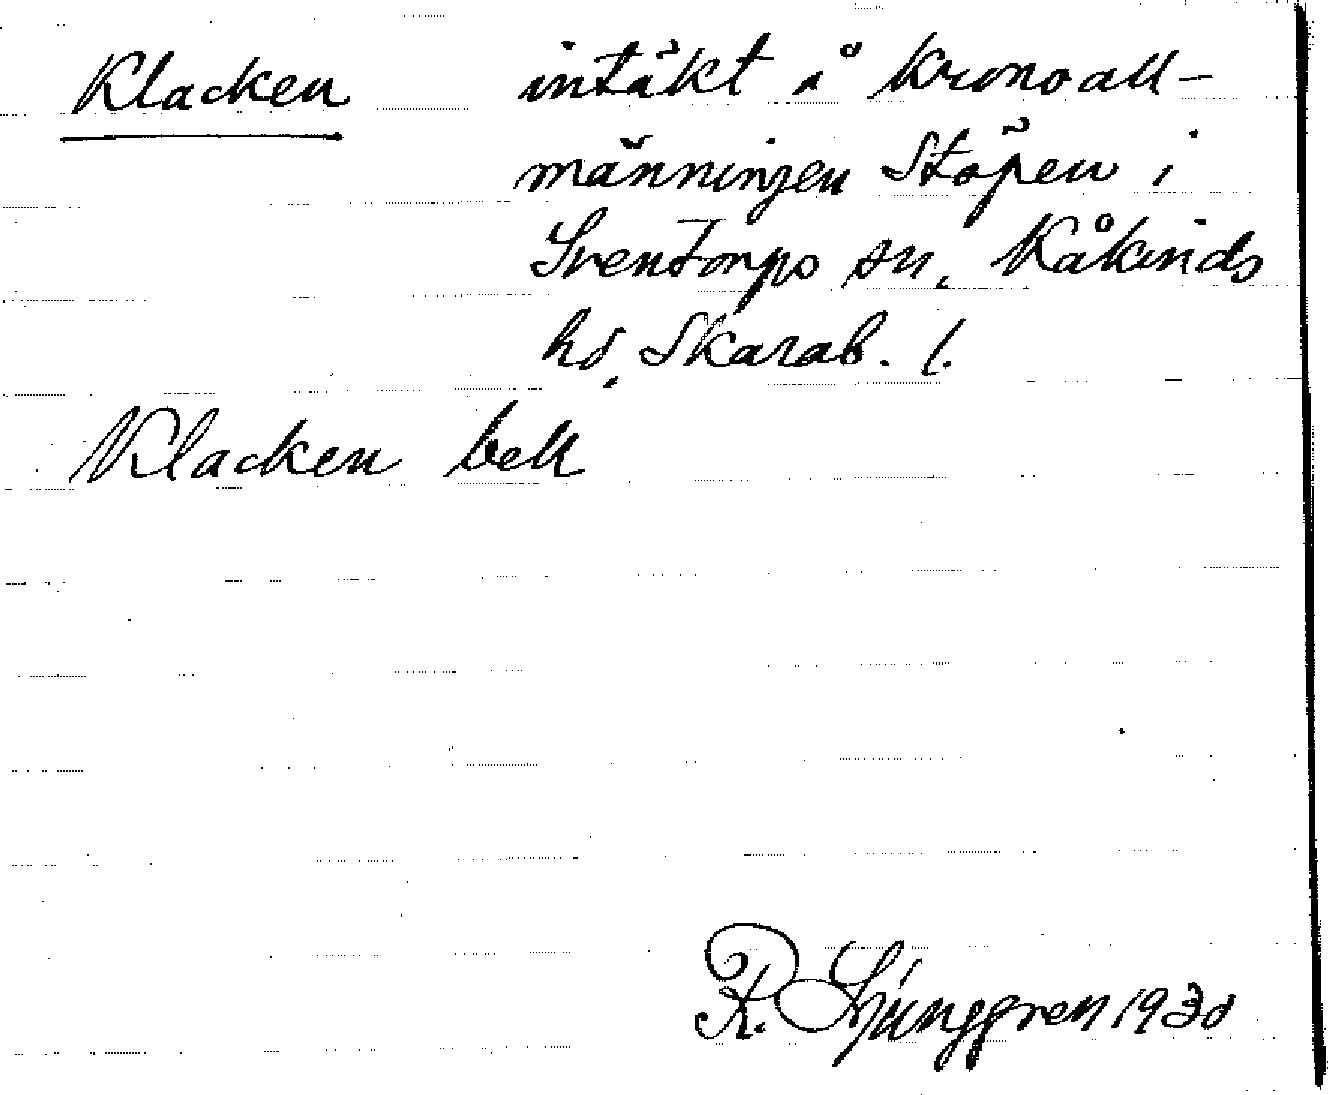 Klacken intäkt å kronoall-
männingen Stöpen i
Sventorps sn, Kåkinds
hd, Skarab. l.
Klacken bell
R. Ljunggren 1930